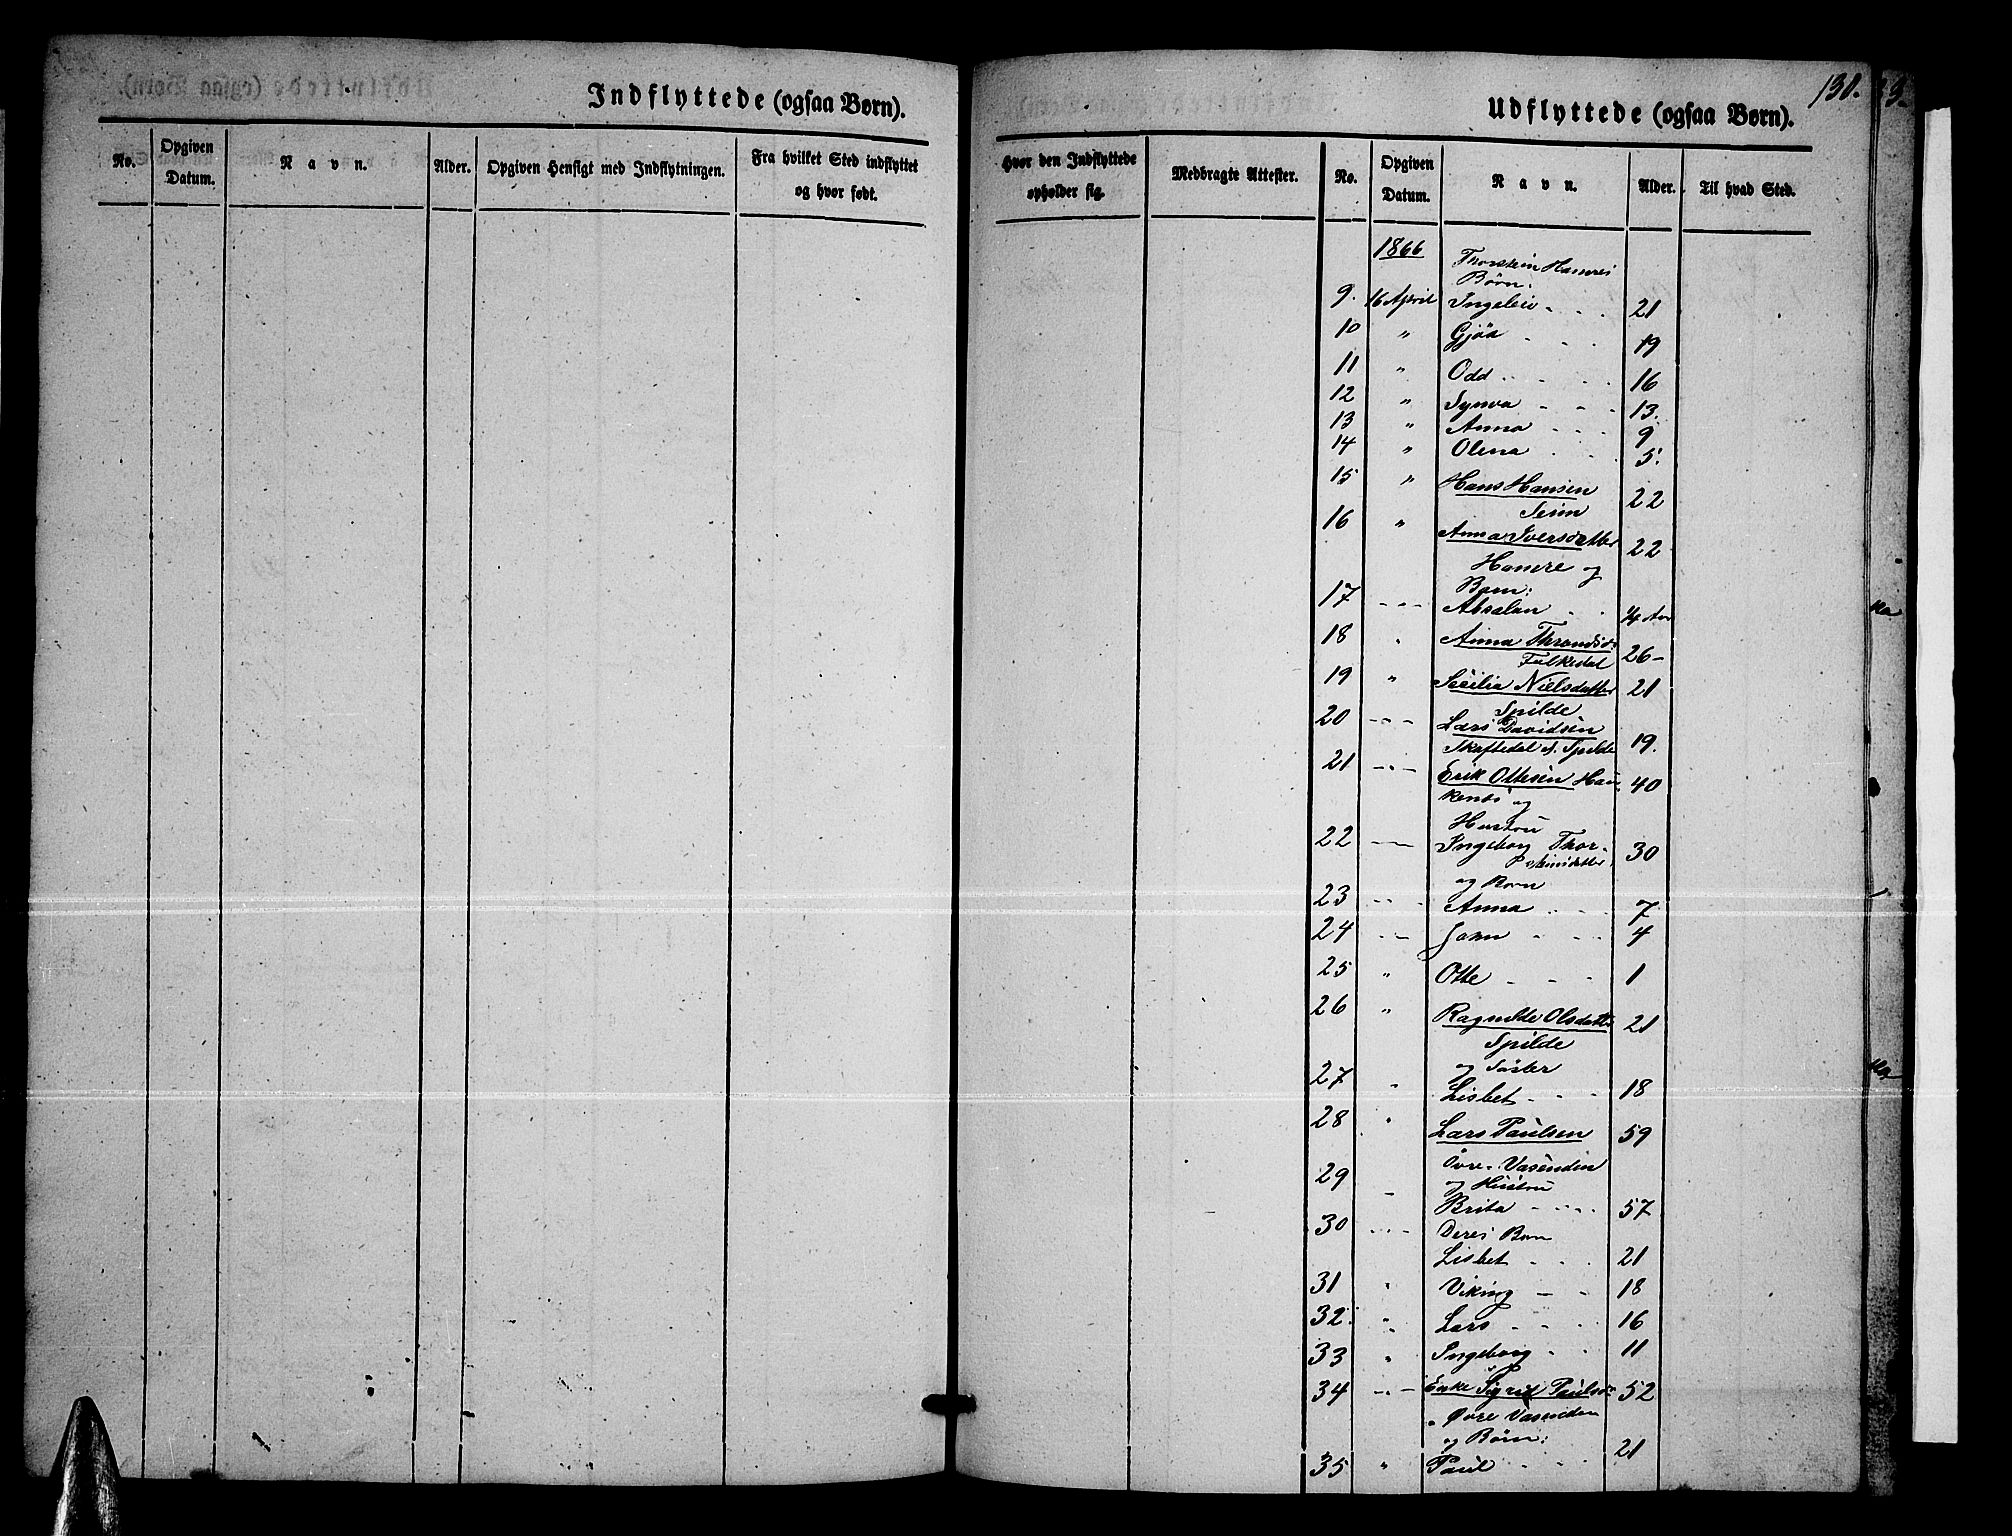 Indflyttede (ogsaa Børn).
No.
Opgiven Datum.
Navn.
Alder.
Opgiven Hensigt med Indflytningen.
Fra hvilket Sted indflyttet og hvor født.
130.
Udflyttede (ogsaa Børn).
Hvor den Indflyttede opholder sig.
Medbragte Attester.
No.
Opgiven Datum.
Navn.
Alder.
Til hvad Sted.
1866 Thorstein Hamres
Børn:
9. 16 April Ingeleiv 21
10 " Gjøa 19
11 " Odd 16
12 " Synva 13.
13 " Anna 9
14 " Olena 5.
15 " Hans Hansen 22
Seim
16 " Anna Iversdatter 22
Hamre og
Barn:
17 Absalon 4
18 Anna Thrandsd: 26
Folkedal
19 " Secilia Nielsdatter 21
Spilde
20 Lars Davidsen 19.
Skaftedal Spilde
21 Erik Ottesen Hau- 40
kenes og
Hustru
22 Ingeborg Thor- 30
steinsdatter
og Børn
23 Anna 7
24 John 4
25 " Otte 1
26 " Ragnilde Olsdatter 21
Spilde
og Søster
27 " Lisbet 18
28 " Lars Paulsen 59
Øvre-Vasenden
29 og Hustru
Brita 57
30 Deres Børn
Lisbet 21
31 " Viking 18
32. " Lars 16
33 " Ingeborg 11
34 Enke Sigrid Paulsd: 52
Øvre Vasenden
og Børn:
35 " Paul 21